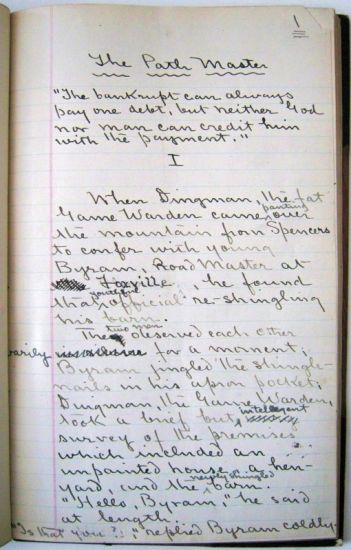 1
The Path Master
"The bankrupt can always
pay one debt, but neither God
nor man can credit him
with the payment."
I
When Dingman, the fat
panting
Game Warden came over
the mountain from Spencers
to confer with young
Byram, Road Master at
Foxville he found
that official re-shingling
his barn.
two men
The observed each other
warily for a moment;
Byram jingled the shingle-
nails in his apron pocket;
Dingman, the Game Warden,
intelligent
took a brief but
survey of the premises
which included an
unpainted house, a hen-
newly shingled
yard, and the barn.
"Hello, Byram," he said
at length.
"Is that you?" replied Byram coldly.